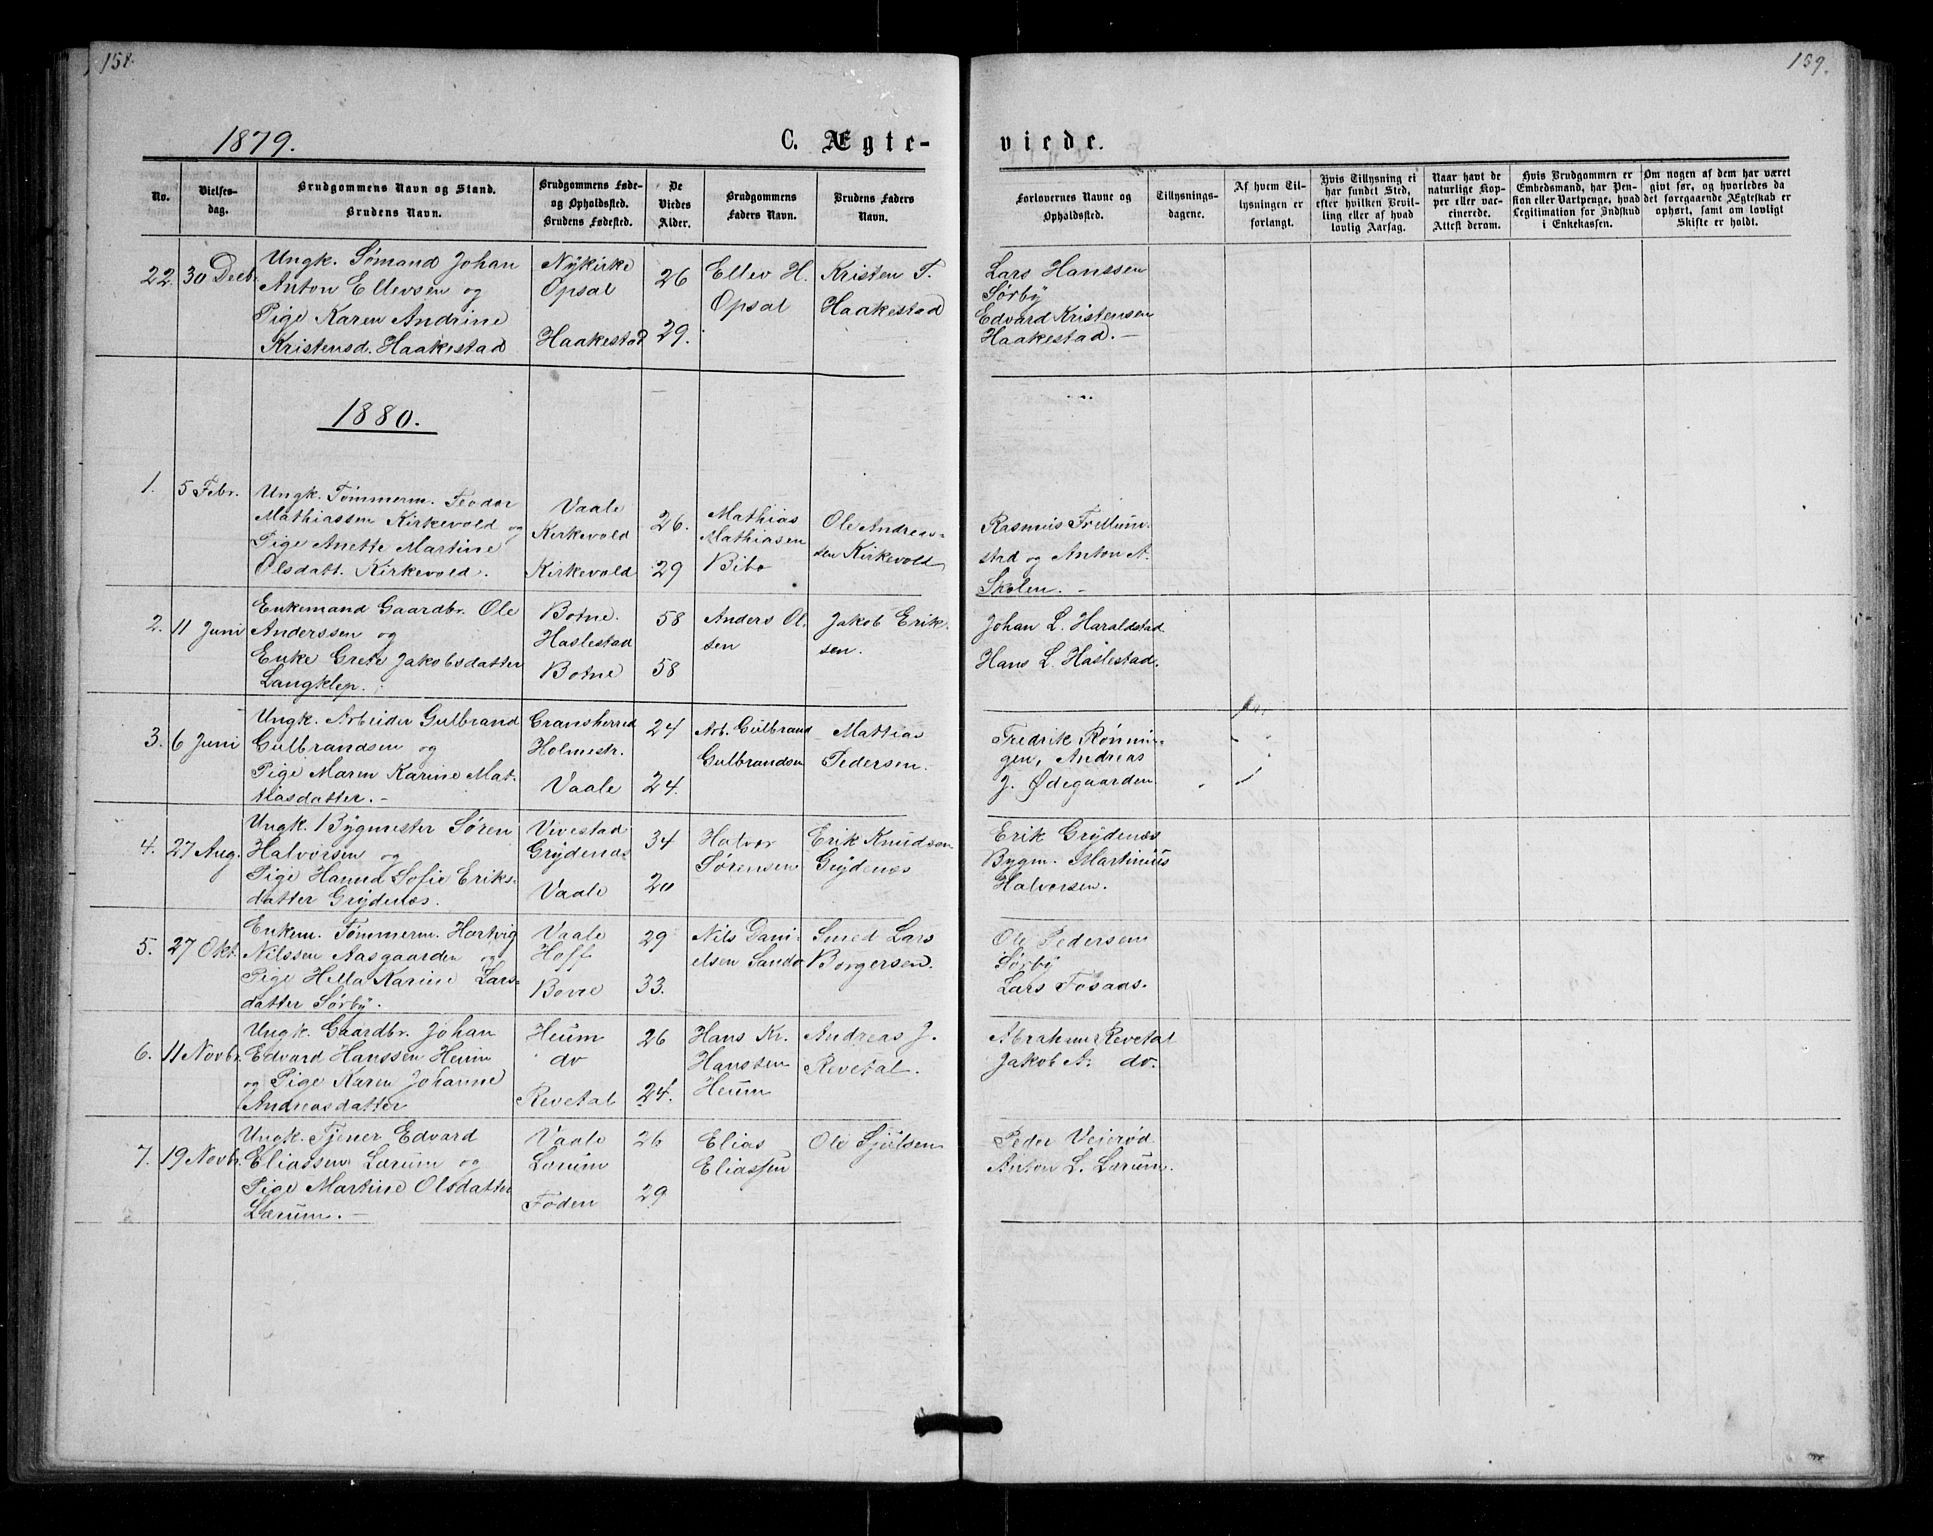 158.
159.
1879.
C. Ægte-
viede.
No.
Vielses-
dag.
Brudgommens Navn og Stand.
Brudens Navn.
Brudgommens Føde-
og Opholdssted.
Brudens Fødested.
De
Viedes
Alder.
Brudgommens
Faders Navn.
Brudens Faders
Navn.
Forlovernes Navne og
Opholdssted.
Tillysnings-
dagene.
Af hvem Til-
lysningen er
forlangt.
Hvis Tillysning ei
har fundet Sted,
efter hvilken Bevil-
ling eller af hvad
lovlig Aarsag.
Naar havt de
naturlige Kop-
per eller vac-
cinerede.
Attest derom.
Hvis Brudgommen er
Embedsmand, har Pen-
sion eller Vartpenge, hvad
Legitimation for Indskud
i Enkekassen.
Om nogen af dem har været
givt før, og hvorledes da
det foregaaende Ægteskab er
ophørt, samt om lovligt
Skifte er holdt.
22. 30 Decb.
Ungk. Sømand Johan
Anton Ellevsen og
Pige Karen Andrine
Kristensd. Haakestad
Nykirke
Opsal
Haakestad
26
29.
Ellev H.
Opsal
Kristen T.
Haakestad
Lars Hanssen
Sørby
Edvard Kristensen
Haakestad. -
1880.
1. 5 Febr.
Ungk. Tømmerm. Teodor
Mathiassen Kirkevold og
Pige Anette Martine
Olsdatt. Kirkevold.
Vaale
Kirkevold
Kirkevold
26.
29
Mathias
Mathiasen
Bibo
Ole Andreas-
sen Kirkevold
Rasmus Trellum-
stad og Anton A.
Skolen. -
2. 11 Juni
Enkemand Gaardbr. Ole
Anderssen og
Enke Grete Jakobsdatter
Langklep.
Botne.
Haslestad
Botne
58
58
Anders Ol-
sen
Jakob Erik-
sen.
Johan L. Haraldstad
Hans L. Haslestad.
3. 6 Juni
Ungk. Arbeider Gulbrand
Gulbrandsen og
Pige Maren Karine Mat-
tiasdatter. -
Gransherred
Holmestr.
Vaale
24
24.
Arb. Gulbrand
Gulbrandsen
Mattias
Pedersen.
Fredrik Rønnin-
gen, Andreas
J. Ødegaarden
4. 27 Aug.
Ungk. Bygmester Søren
Halvorsen og
Pige Hanna Sofie Eriks-
datter Grydenæs.
Vivestad
Grydenæs
Vaale
34
20
Halvor
Sørensen
Erik Knudsen
Grydenæs
Erik Grydenæs
Bygm. Martinius
Halvorsen.
5. 27 Okt.
Enkem. Tømmerm. Hartvig
Nilssen Aasgaarden og
Pige Hella Karine Lars-
datter Sørby.
Vaale
Hoff
Borre
29
33.
Nils Dani-
elsen Sando
Smed Lars
Borgersen.
Ole Pedersen
Sørby
Lars Fosaas.
6. 11 Novbr.
Ungk. Gaardbr. Johan
Edvard Hanssen Heum
og Pige Karen Johanne
Andreasdatter
Heum
do
Revetal
26
24.
Hans Kr.
Hanssen
Heum
Andreas J.
Revetal.
Abraham Revetal
Jakob A. do.
7. 19 Novbr.
Ungk. Tjener Edvard
Eliassen Lærum og
Pige Martine Olsdatter
Lærum. -
Vaale
Lærum
Foden
26
29
Elias
Eliassen
Ole Sjulsen
Peder Vejerød
Anton L. Lærum.